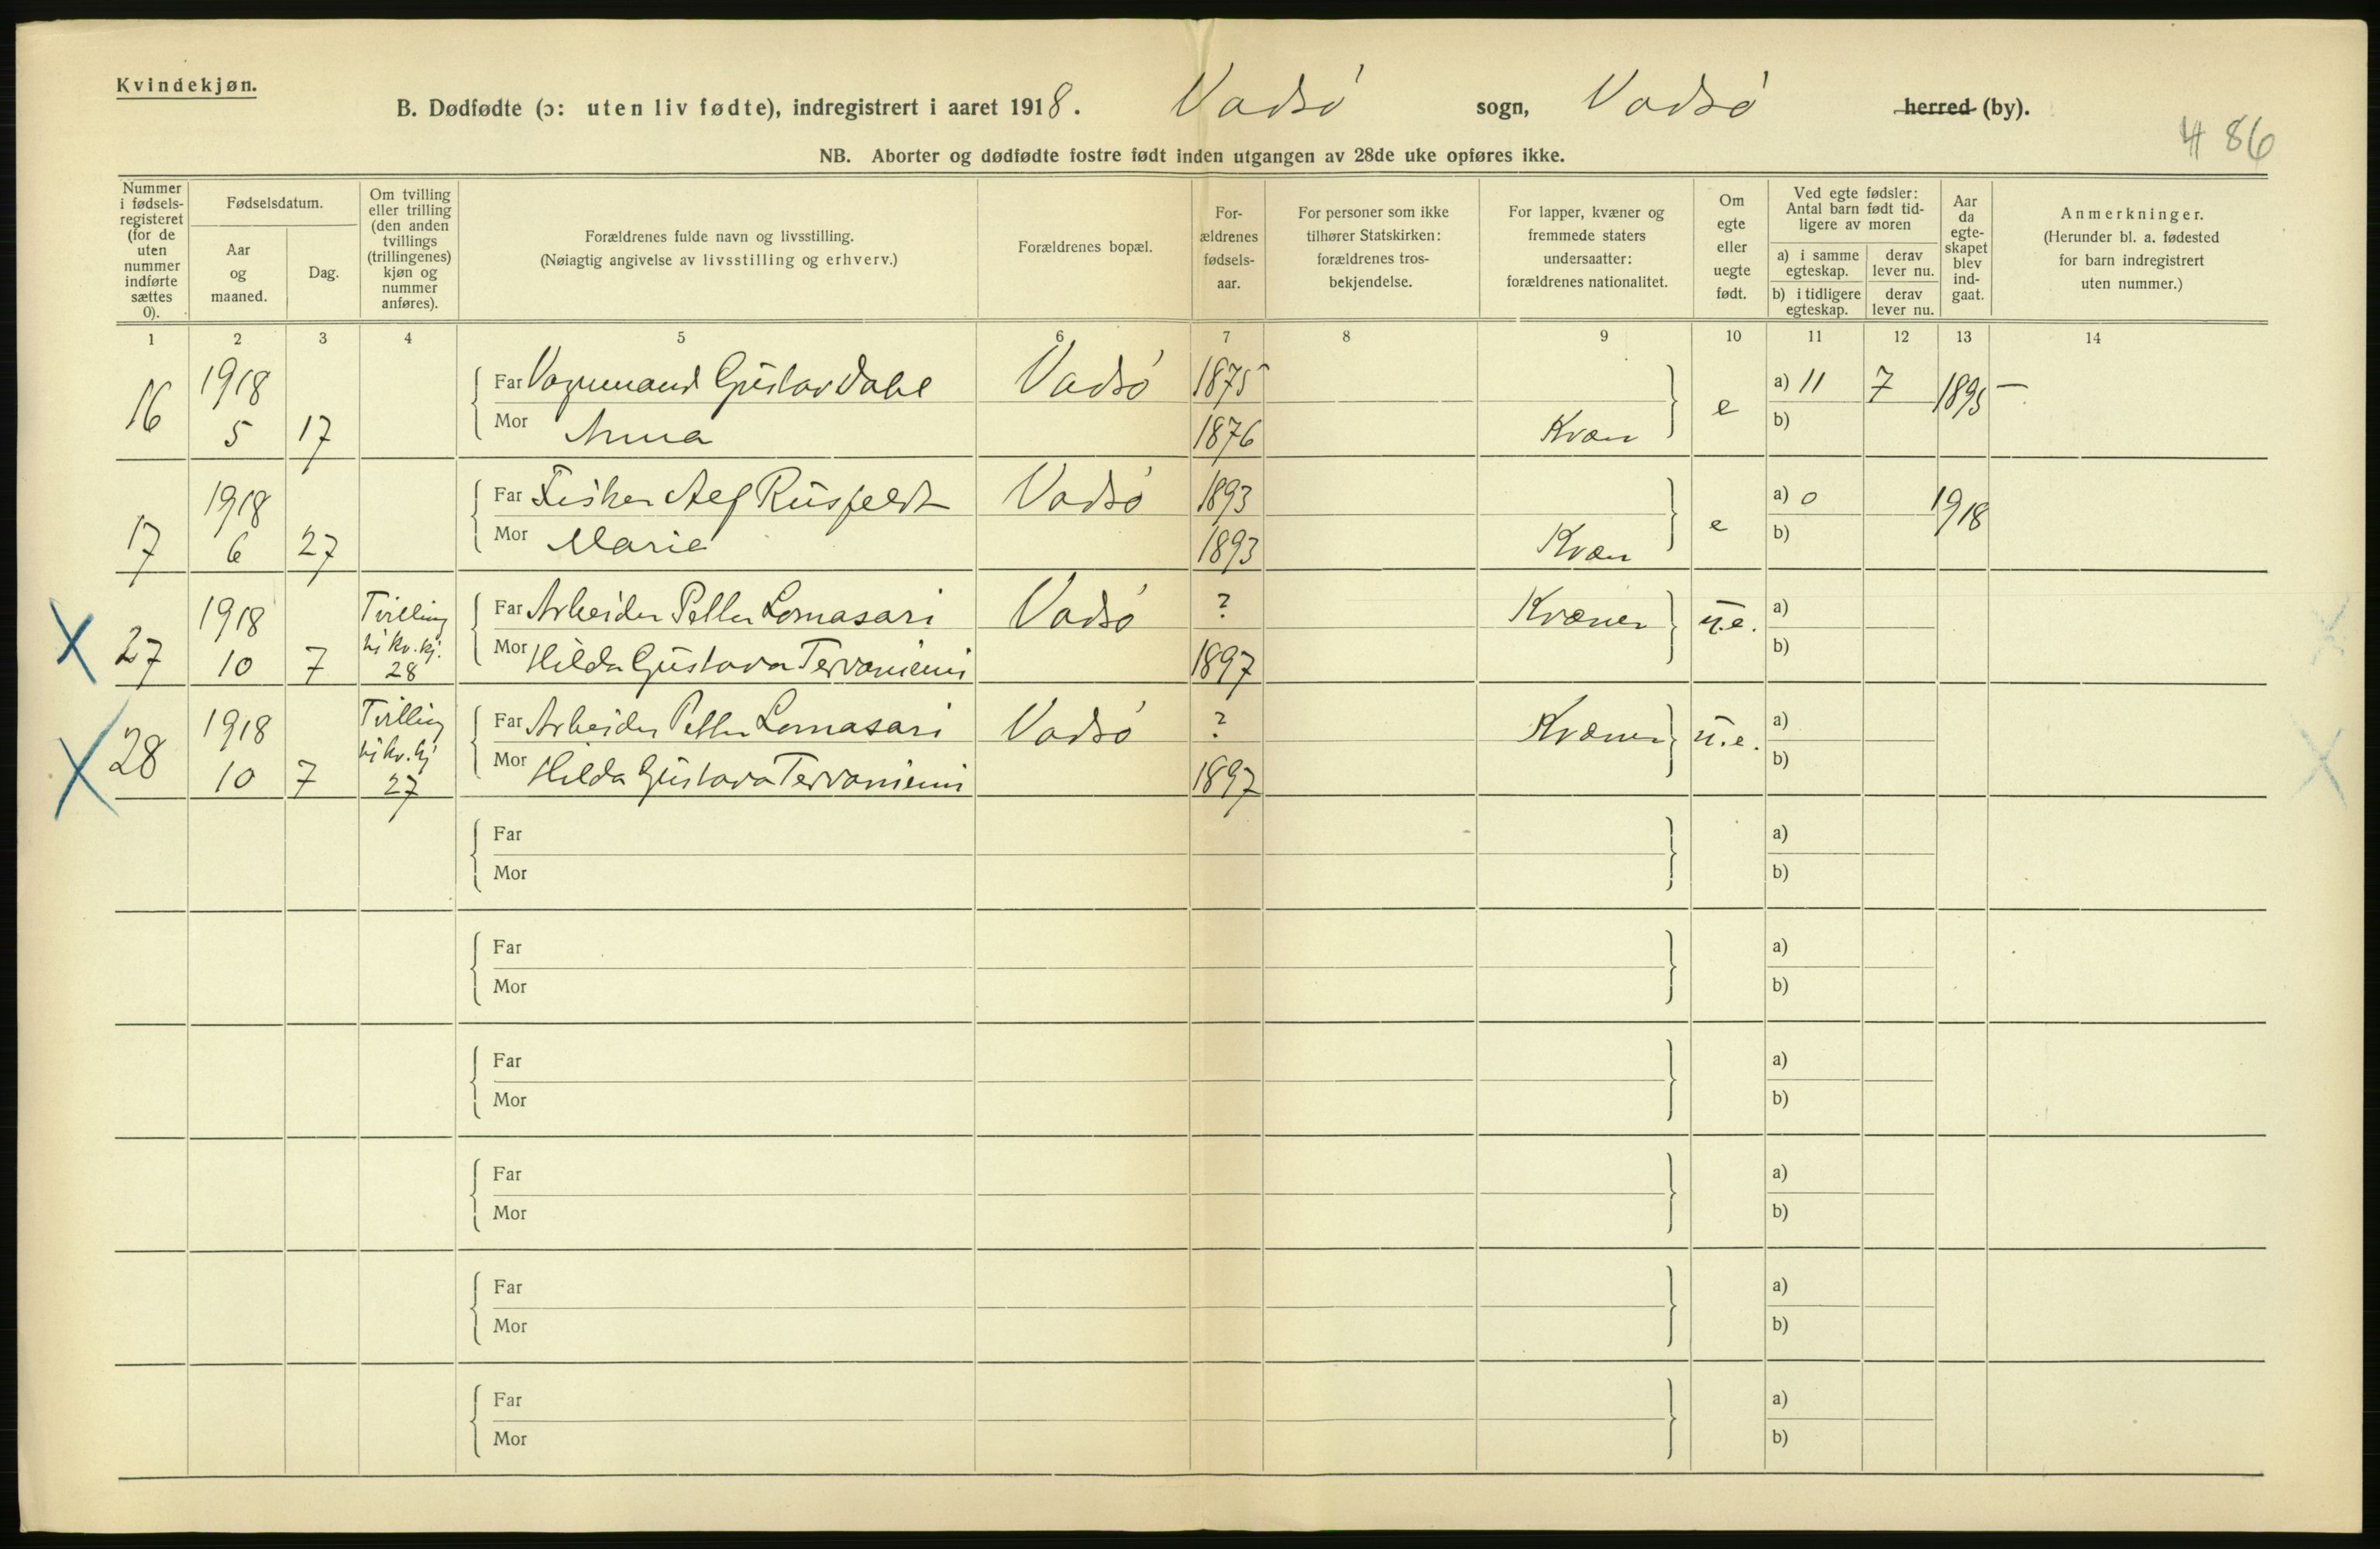 Kvindekjøn.
B. Dødfødte (ɔ: uten liv fødte), indregistrert i aaret 1918. Vadsø sogn, Vadsø herred (by).
486
NB. Aborter og dødfødte fostre født inden utgangen av 28de uke opføres ikke.
Nummer i fødsels-registeret (for de uten nummer indførte sættes 0).
Fødselsdatum.
Aar og maaned.
Dag.
Om tvilling eller trilling (den anden tvillings (trillingenes) kjøn og nummer anføres).
Forældrenes fulde navn og livsstilling.
(Nøiagtig angivelse av livsstilling og erhverv.)
Forældrenes bopæl.
For-ældrenes fødsels-aar.
For personer som ikke tilhører Statskirken: forældrenes tros-bekjendelse.
For lapper, kvæner og fremmede staters undersaatter: forældrenes nationalitet.
Om egte eller uegte født.
Ved egte fødsler: Antal barn født tid-ligere av moren
a) i samme egteskap. derav lever nu.
b) i tidligere egteskap. derav lever nu.
Aar da egte-skapet blev ind-gaat.
Anmerkninger.
(Herunder bl. a. fødested for barn indregistrert uten nummer.)
1 2 3 4 5 6 7 8 9 10 11 12 13 14
16 1918 Far Vognmand Gustav Dahl Vadsø 1875 e a) 11 7 1895 –
5 17 Mor Anna 1876 Kvæn b)
17 1918 Far Fisker Alf Rusfeldt Vadsø 1893 e a) 0 1918
6 27 Mor Marie 1893 Kvæn b)
X 27 1918 Tvilling Far Arbeider Petter Lomasari Vadsø ? Kvæner u.e. a)
10 7 kv.kj. 28 Mor Hilda Gustava Tervaniemi 1897 b)
X 28 1918 Tvilling Far Arbeider Petter Lomasari Vadsø ? Kvæner u.e. a)
10 7 kv.kj 27 Mor Hilda Gustava Tervaniemi 1897 b)
Far a)
Mor b)
Far a)
Mor b)
Far a)
Mor b)
Far a)
Mor b)
Far a)
Mor b)
Far a)
Mor b)